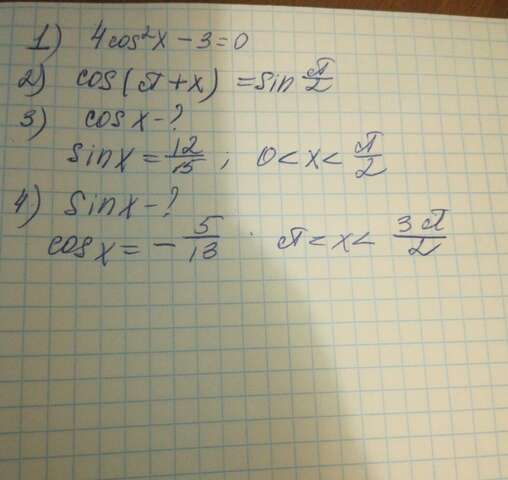 1) 4cos²x - 3 = 0
2) cos(π + x) = sin π/2
3) cos x - ?
sin x = 12/15 ; 0 < x < π/2
4) sin x - ?
cos x = - 5/13 π < x < 3π/2